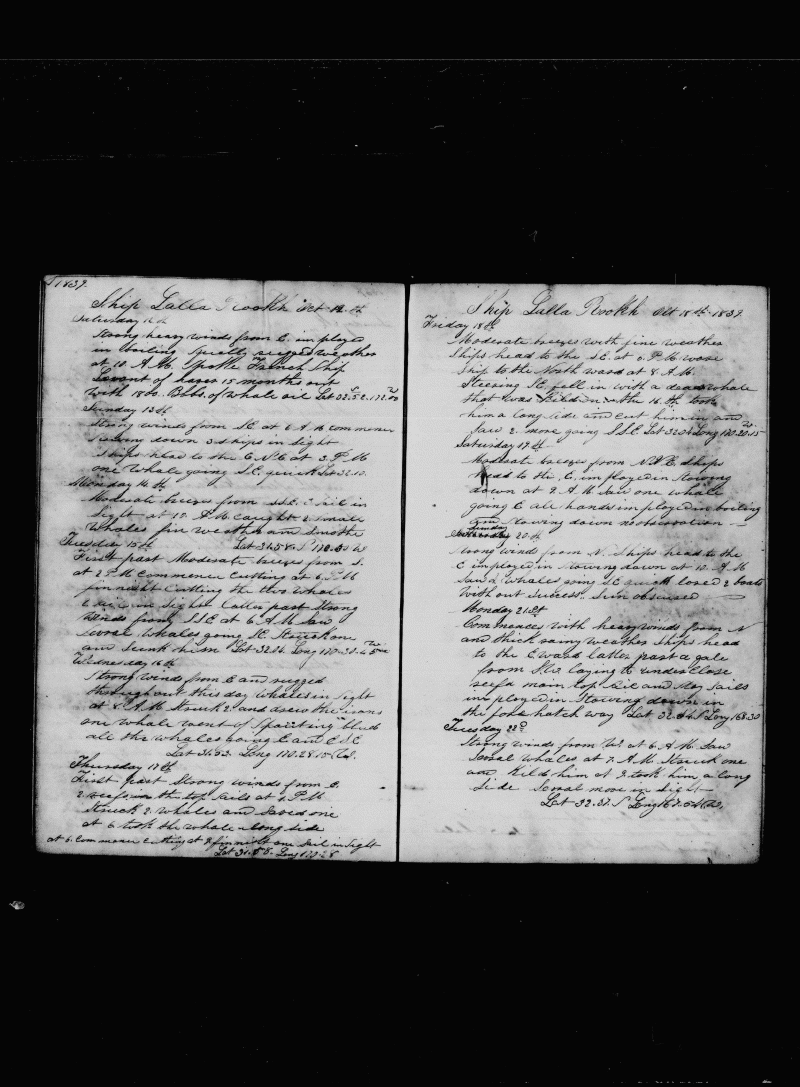 1839.
Ship Lalla Rookh Oct 12 th
Saturday 12 th
Strong heavy winds from E. imployed
in boiling rugged weather
at 10 A.M. Spoke French Ship
of haver 15 months out
with 1800. Bbls. of whale oil Lat 32.52. 172.00
Sunday 13 th
Strong winds from SE at 6 A.M commence
stowing down 3 ships in sight
ships head to the E.N.E at 3. P.M
one Whale going S.E. quick Lat 32.10.
Monday 14 th
Moderate breezes from S.S.E. sail in
Sight at 10. A.M. Caught 2. whales
fin weather and Smothe
Tuesdie 15 th Lat 31.58. S 170.03 W
First part Moderate breezes from S.
at 2 P.M Commence Cutting at 6. P.M
finnisht Cutting the two whales
in sight Latter part strong
winds from S.S.E at 6 A.M Saw
several whales going S.E. Struck one
and Sunk him Lat 32.06. Long 170.
Wednesday 16 th
Strong winds from E and rugged
throughout this day whales in Sight
at 8. A.M. Struck 2. and drew the irons
one whale went of Spouting blud
all the whales going E and E.S.E
Lat 31.52. Long 170.28.15 W.
Thursday 17 th
First part Strong winds from E.
2. reefs in the top Sails at 1. P.M.
Struck 2. whales and Saved one
at 6 took the whale along side
at 6. Commence Cutting at 9 finnisht one sail in Sight
Lat 31.58. Long 170.28
Ship Lalla Rookh Oct 18 th. 1839.
Friday 18 th
Moderate breezes with fine weather
Ships head to the S.E. at 6. P.M wore
Ship to the North ward at 8 A.M.
Steering S.E. fell in with a dead whale
that was killd on the 16. th. took
him a long side and cut him in and
Saw 2. more going S.S.E. Lat 32.04 Long 170.20.15
Saturday 19 th.
Moderate breezes from N.N.E. ships
head to the E. imployed in stowing
down at 9. A.M saw one whale
going E all hands imployed in boiling
and Stowing down no observation
Sunday 20 th
Strong winds from N. Ships head to the
E imployed in Stowing down at 10. A.M
Saw 2. whales going S.E quick lored 2 boats
without Success. Sun obscured
Monday 21 st
Commences with heavy winds from N
and thick rainy weather Ships head
to the E ward latter part a gale
from laying to under close
reefd main top Sail and Stay Sails
imployed in Stowing down in
the fore hatch way Lat 32.04 S Long 168.30
Tuesday 22 d
Strong winds from W at 6 A.M. Saw
Several whales at 7. A.M. Struck one
and Kild him at 9. took him a long
Side Several more in Sight
Lat 32.31. S Long 167.54 W.